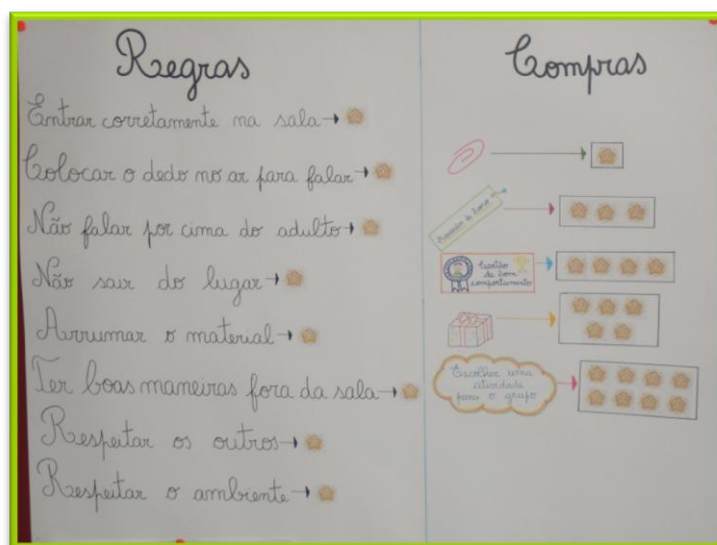 Regras
Entrar corretamente na sala
Colocar o dedo no ar para falar
Não falar por cima do adulto
Não sair do lugar
Arrumar o material
Ter boas maneiras fora da sala
Respeitar os outros
Respeitar o ambiente
Compras
Marcador de livros
Cartão
de bom
comportamento
Escolher uma
atividade
para o grupo